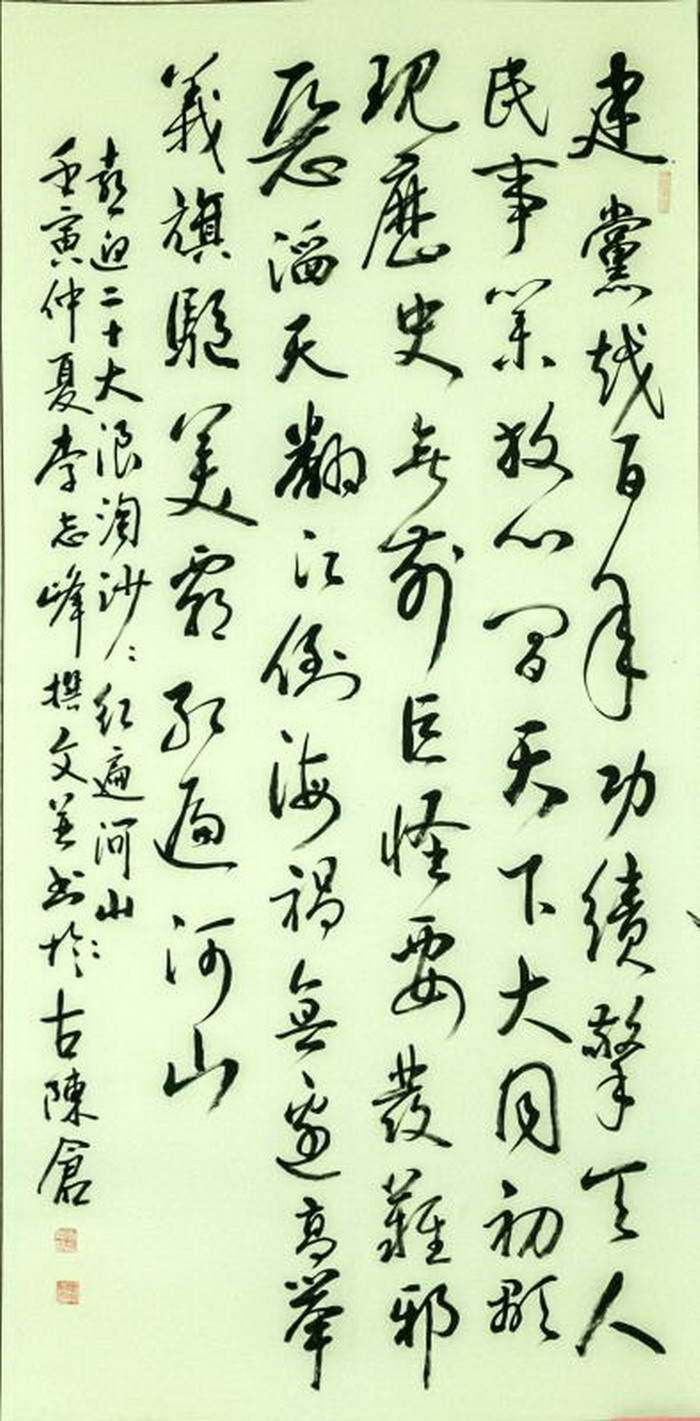 建黨越百年功績擎天人
民事業放心間天下大同初顯
現歷史無前巨怪要發難邪
惡滔天翻江倒海禍無邊高舉
義旗驅美霸紅遍河山
喜迎二十大浪淘沙：紅遍河山：
壬寅仲夏李志峰撰文並書於古陳倉